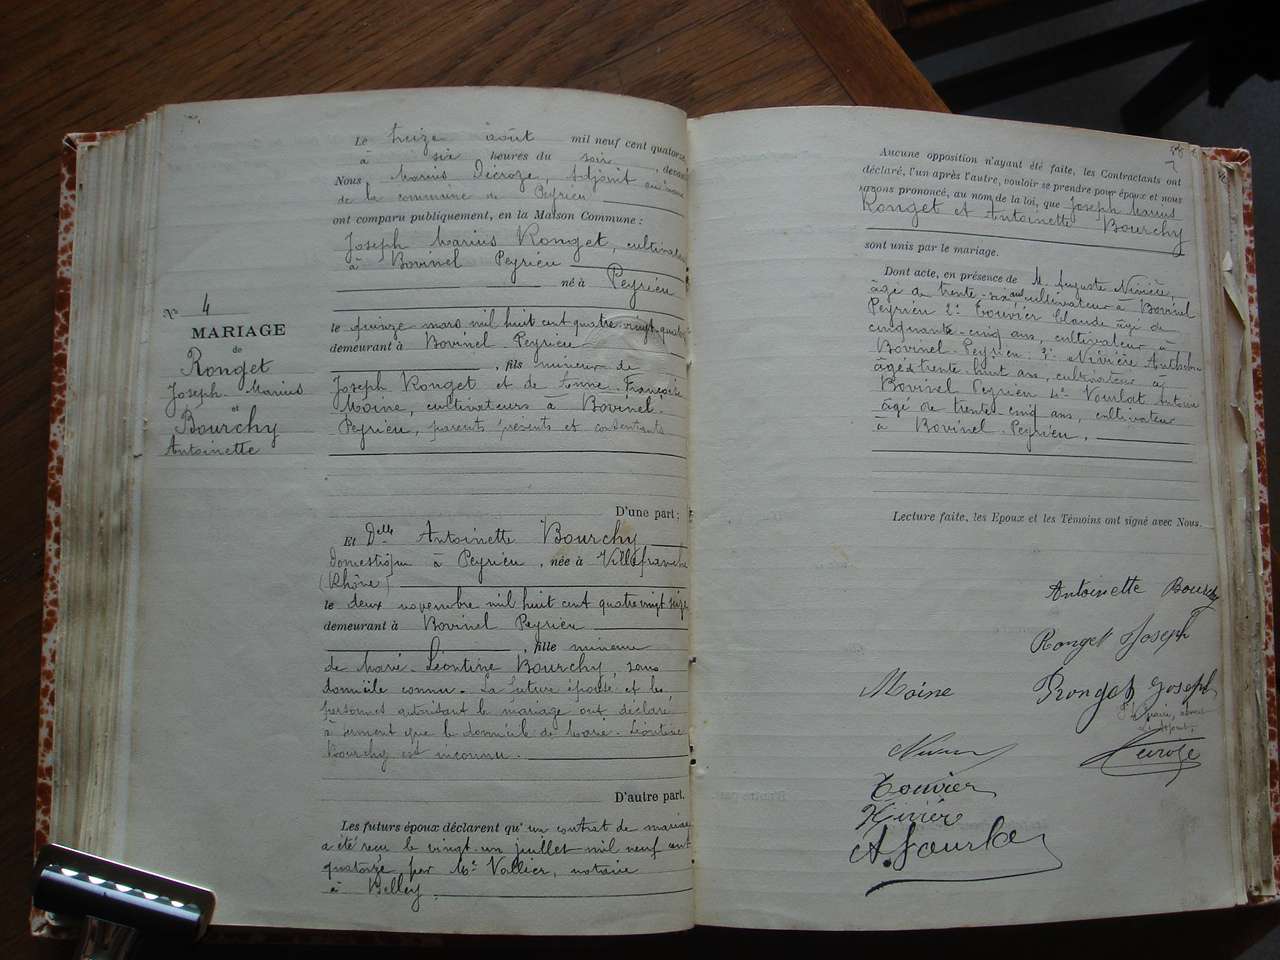 Le treize août mil neuf cent quatorze
à six heures du soir, devant
Nous Marius Décroze, Adjoint au maire
de la commune de Peyrieu
ont comparu publiquement, en la Maison Commune :
Joseph Marius Ronget, cultivateur
à Bovinel Peyrieu
né à Peyrieu
le quinze mars mil huit cent quatre vingt quatorze
demeurant à Bovinel Peyrieu
, fils mineur de
Joseph Ronget et de Françoise
Moine, cultivateurs à Bovinel-
Peyrieu, parents présents et consentants
D'une part ;
N° 4
MARIAGE
de
Ronget
Joseph-Marius
et
Bourchy
Antoinette
Et Delle Antoinette Bourchy
domestique à Peyrieu, née à Villefranche
(Rhône)
le deux novembre mil huit cent quatre vingt seize
demeurant à Bovinel Peyrieu
, fille mineure
de Marie-Léontine Bourchy, sans
domicile connu. La future épouse et les
personnes autorisant le mariage ont déclaré
à serment que le domicile de Marie-Léontine
Bourchy est inconnu.
D'autre part.
Les futurs époux déclarent qu'un contrat de mariage
a été reçu le vingt-un juillet mil neuf cent
quatorze par Me Vallier, notaire
à Belley.
Aucune opposition n'ayant été faite, les Contractants ont
déclaré, l'un après l'autre, vouloir se prendre pour époux et nous
avons prononcé, au nom de la loi, que Joseph Marius
Ronget et Antoinette Bourchy
sont unis par le mariage.
Dont acte, en présence de M. Auguste Nivière,
âgé de trente-six ans cultivateur à Bovinel
Peyrieu 2° Touvier Claude âgé de
cinquante-cinq ans, cultivateur à
Bovinel-Peyrieu. 3° Nivière Anthelme
âgé trente huit ans, cultivateur à
Bovinel Peyrieu 4° Antoine
âgé de trente cinq ans, cultivateur
à Bovinel-Peyrieu.
Lecture faite, les Epoux et les Témoins ont signé avec Nous.
Antoinette Bourchy
Ronget Joseph
Moine Ronget Joseph
Décroze
Touvier
Nivière